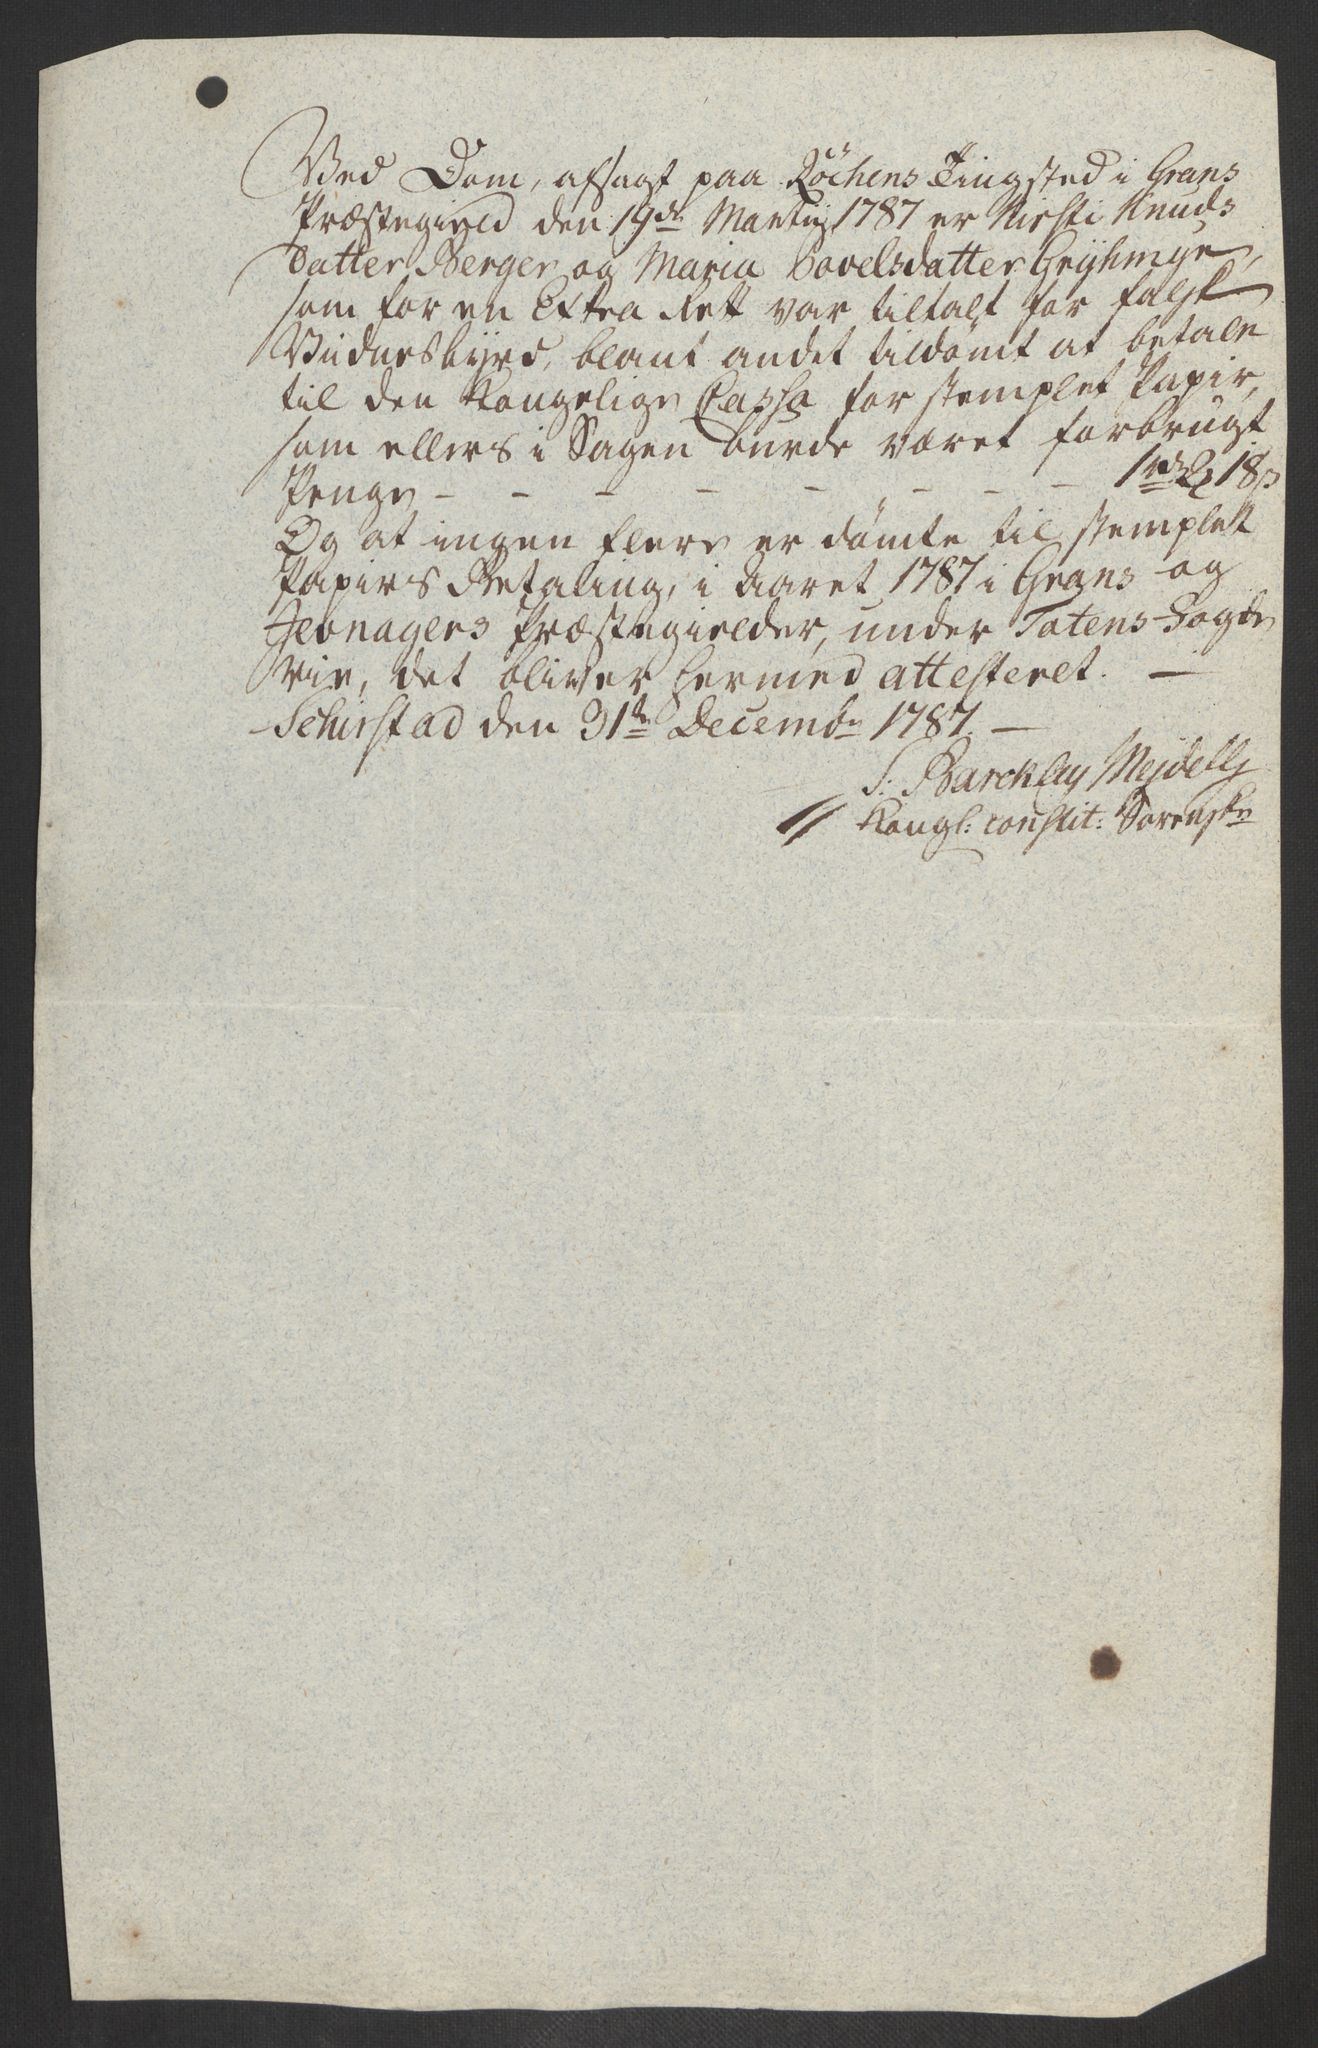 Ved Dom, afsagt paa Röchens Tingsted i Grans
Præstegield den 19de Martij 1787 er Kirsti Knuds
datter Berger og Maria Povelsdatter
som for en Extra Rett var tiltalt for falsk
Viidnesbyrd, blant andet tildömt at betale
til den Kongelige Cassa for stemplet Papir,
som ellers i Sagen burde været forbrugt
Penge - - - - - - - - 1 rdr 18 s
Og at ingen flere er dömte til stemplet
Papirs Betaling, i Aaret 1787 i Grans og
Jevnagers Præstegielder, under Totens Fogde
rie, det bliver hermed attesteret. —
Schirstad den 31te Decembr 1787. —
S: Barcklay Mejdell
Kongl: constit: Sorenskr